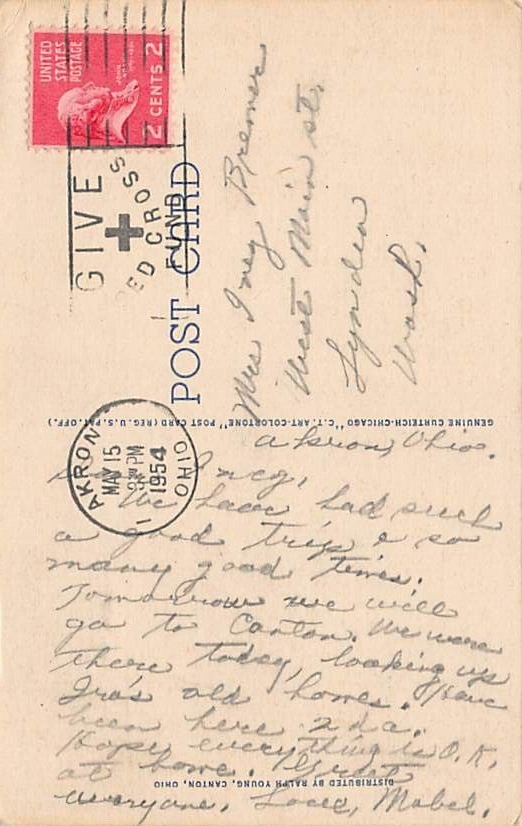 UNITED
STATES
POSTAGE
2 CENTS 2
GIVE
RED CROSS
FUND
POST CARD
Mrs Inez Bremer
West Main st.
Lynden
Wash.
GENUINE CURTEICH-CHICAGO "C.T. ART-COLORTONE" POST CARD (REG. U.S. PAT. OFF.)
AKRON
MAY 15
PM
1954
OHIO
1
Akron, Ohio.
Inez,
We have had such
a good trip & so
many good times.
Tomorrow we will
go to Canton. We were
there today, looking up
Ira's old homes. Have
been here 2 da.
Hope everything is O.K.
at home. Greet
everyone. Love, Mabel.
DISTRIBUTED BY RALPH YOUNG, CANTON, OHIO